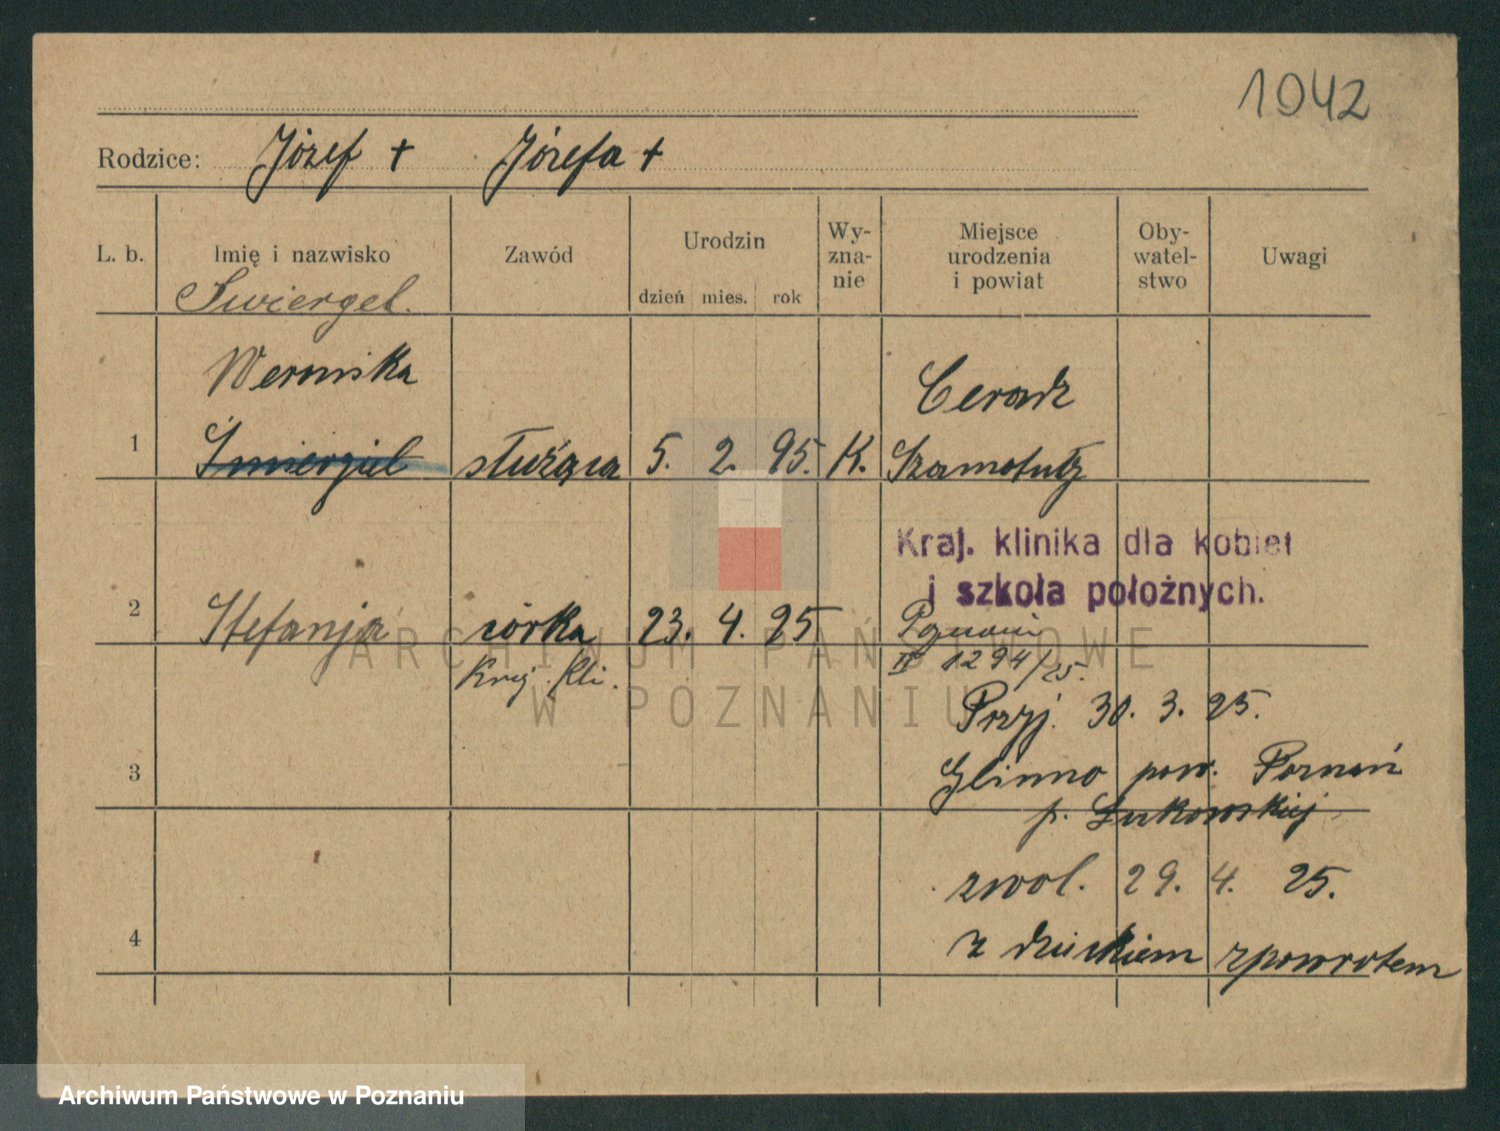 1042
Rodzice: Józef + Józefa +
L. b. Imię i nazwisko Zawód Urodzin dzień mies. rok Wy-zna-nie Miejsce urodzenia i powiat Oby-watel-stwo Uwagi
Swiergel.
Weronika Ceradz
1 Śmiergiel służąca 5. 2. 95. K. Szamotuły
Kraj. klinika dla kobiet
i szkoła położnych.
2 Stefanja córka 23. 4. 25 Poznań
Kraj. Kli. II 1294/25.
Przyj. 30. 3. 25.
3 Glinno pow. Poznań
p. Łukowskiej
zwol. 29. 4. 25.
4 z dzieckiem zpowrotem
ARCHIWUM PAŃSTWOWE
W POZNANIU
Archiwum Państwowe w Poznaniu